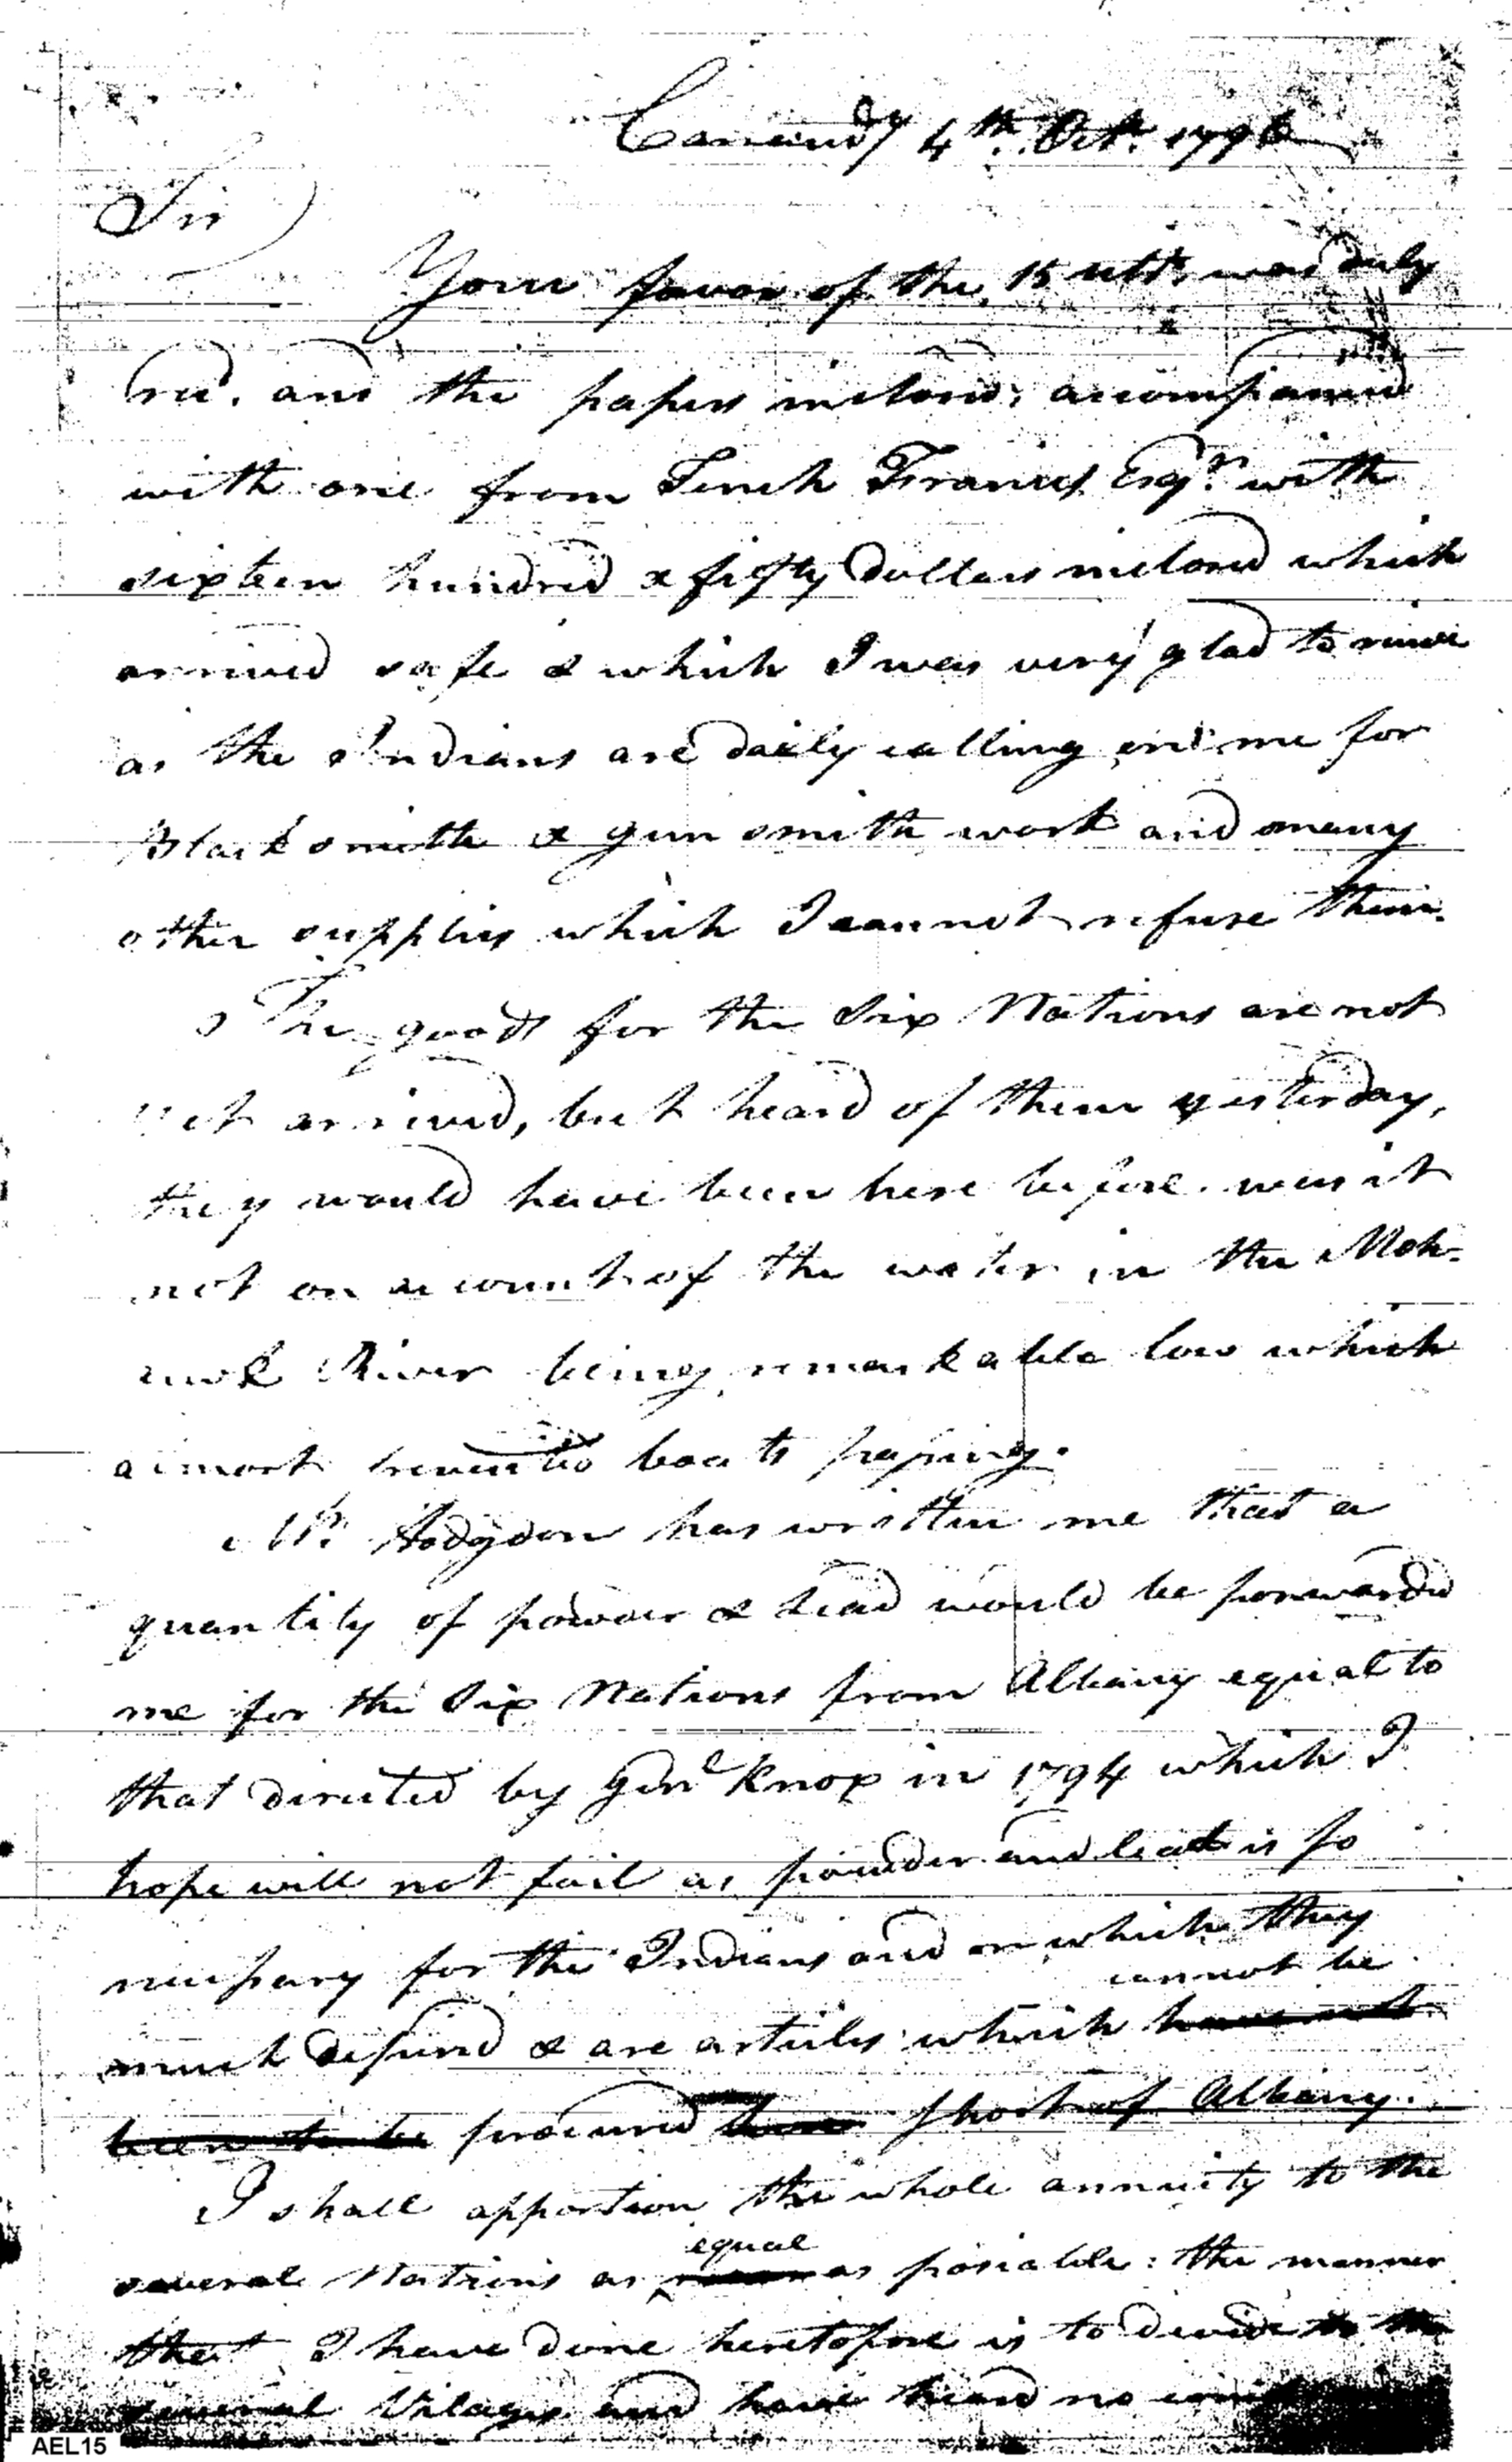 Canandy 4th. Octr. 1796
Sir
Your favor of the 15 ultо. was duly
recd. and the papers inclosed; accompanied
with one from Tench Francis Esqr. with
sixteen hundred & fifty dollars inclosed which
arrived safe & which I was very glad to receive
as the Indians are daily calling on me for
Blacksmith & gun smith work and many
other supplies which I cannot refuse them.
The goods for the Six Nations are not
yet arrived, but heard of them yesterday,
they would have been here before. was it
not on account of the water in the Moh-
awk River being remarkable low which
almost prevented boats passing.
Mr. Hodgdon has written me that a
quantity of powder & lead would be forwarded
me for the Six Nations from Albany equal to
that directed by Genl Knox in 1794 which I
hope will not fail as powder and lead is so
necessary for the Indians and on which they
cannot be
much depend & are articles which have not
been to be procured short of Albany.
I shall apportion the whole annuity to the
equal
several Nations as as posiable: the manner
that I have done heretofore is to devide to the
several Vilages and have heard no
AEL15